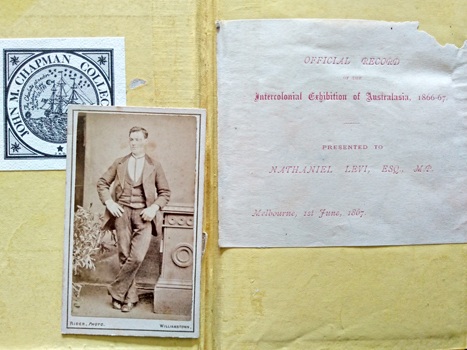 JOHN. M. CHAPMAN COLLEC
BLISS, PHOTO.
WILLIAMSTOWN
OFFICIAL RECORD
OF THE
Intercolonial Exhibition of Australasia, 1866-67.
PRESENTED TO
NATHANIEL LEVI, ESQ., M.P.
Melbourne, 1st June, 1867